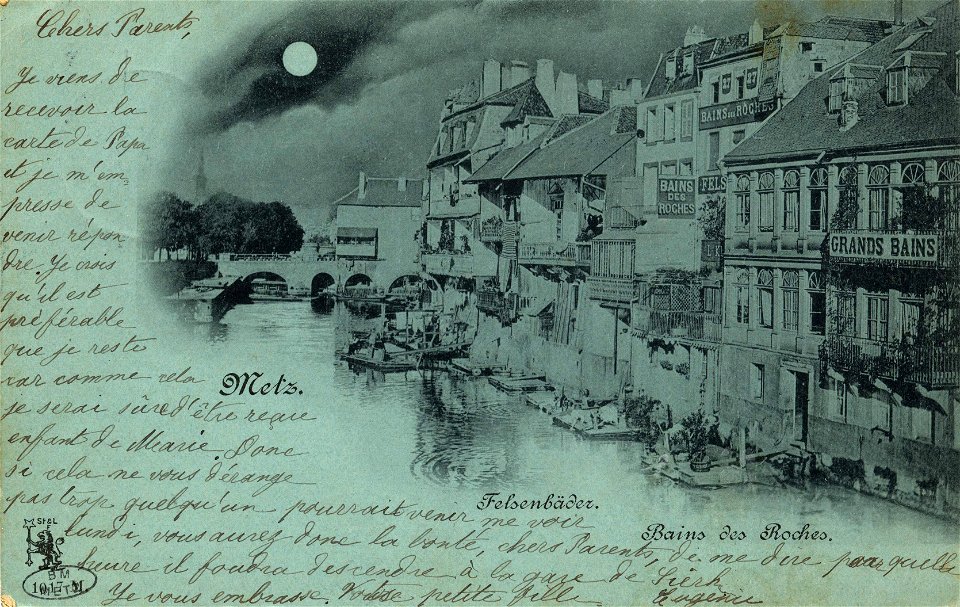 Chers Parents,
Je viens de
recevoir la
carte de Papa
et je m'em
presse de
venir répon
dre. Je crois
qu'il est
préférable
que je reste
car comme cela
je serai sûre d'être reçue
enfant de Marie. Donc
si cela ne vous dérange
pas trop quelqu'un pourrait venir me voir
lundi, vous aurez donc la bonté, chers Parents, de me dire par quelle
heure il foudra descendre à la gare de Sierk
Je vous embrasse. Votre petite fille
Eugénie
Metz.
Felsenbäder.
Bains des Roches.
BAINS DES ROCHES
BAINS
DES
ROCHES
FELS
GRANDS BAINS
St & L
BM
METZ